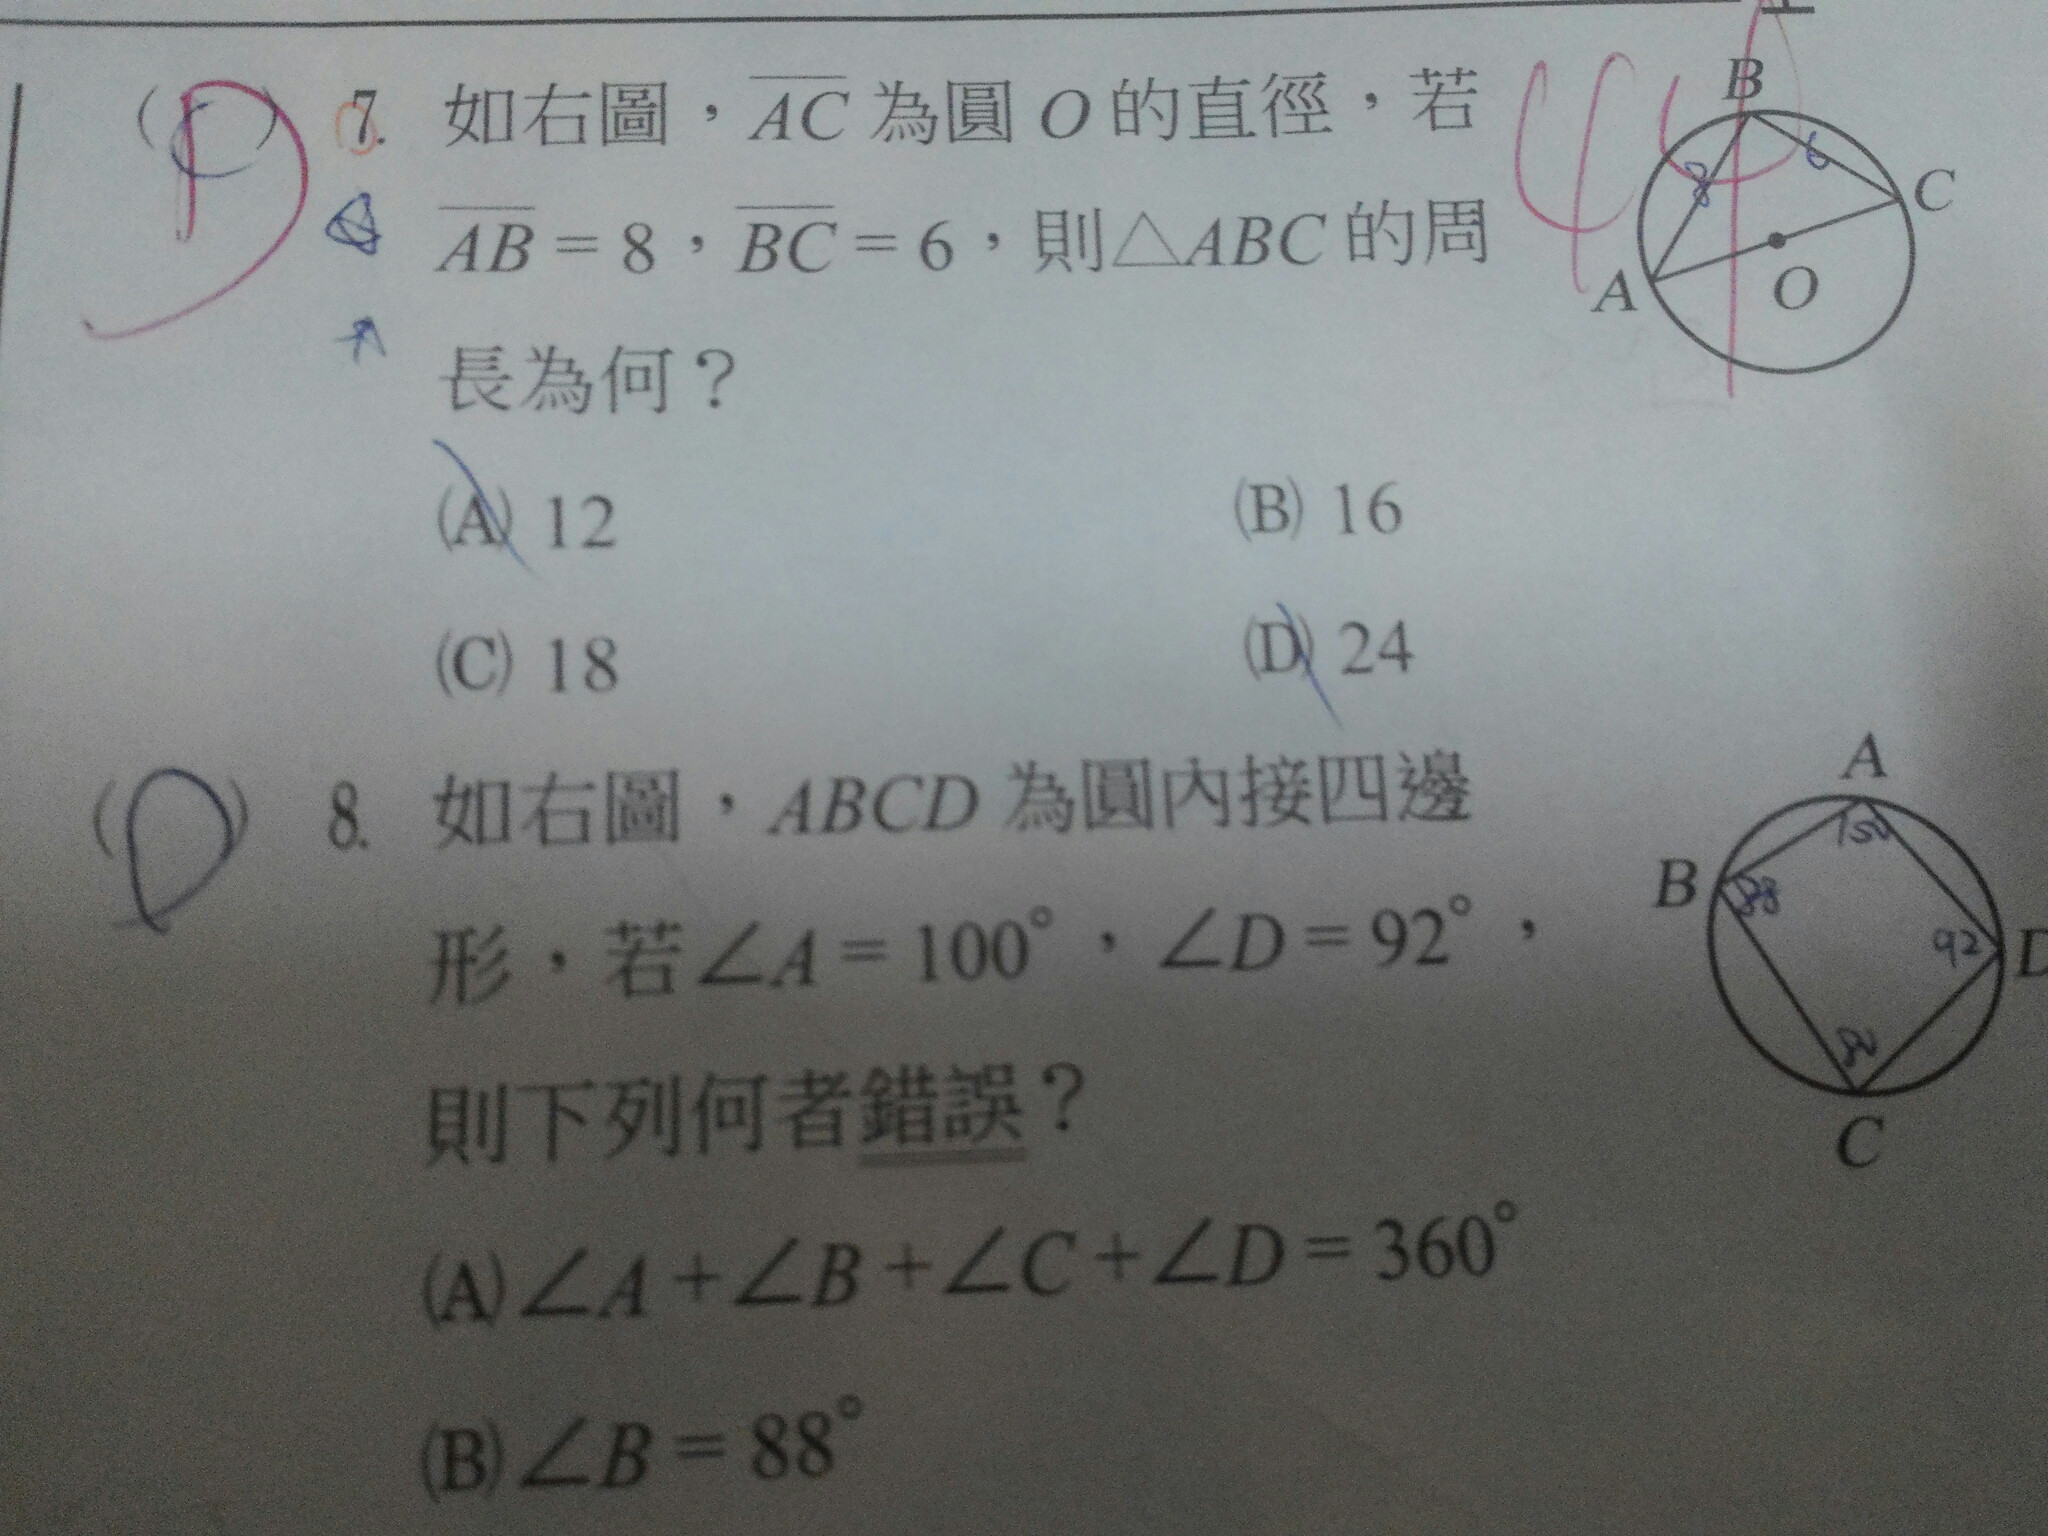 (C) D 7. 如右圖，AC 為圓 O 的直徑，若
AB = 8，BC = 6，則△ABC 的周
長為何？
(A) 12 (B) 16
(C) 18 (D) 24
B
8 6
C
A
O
(D) 8. 如右圖，ABCD 為圓內接四邊
形，若∠A = 100°，∠D = 92°，
則下列何者錯誤？
(A) ∠A + ∠B + ∠C + ∠D = 360°
(B) ∠B = 88°
A
B 88
92 D
80
C